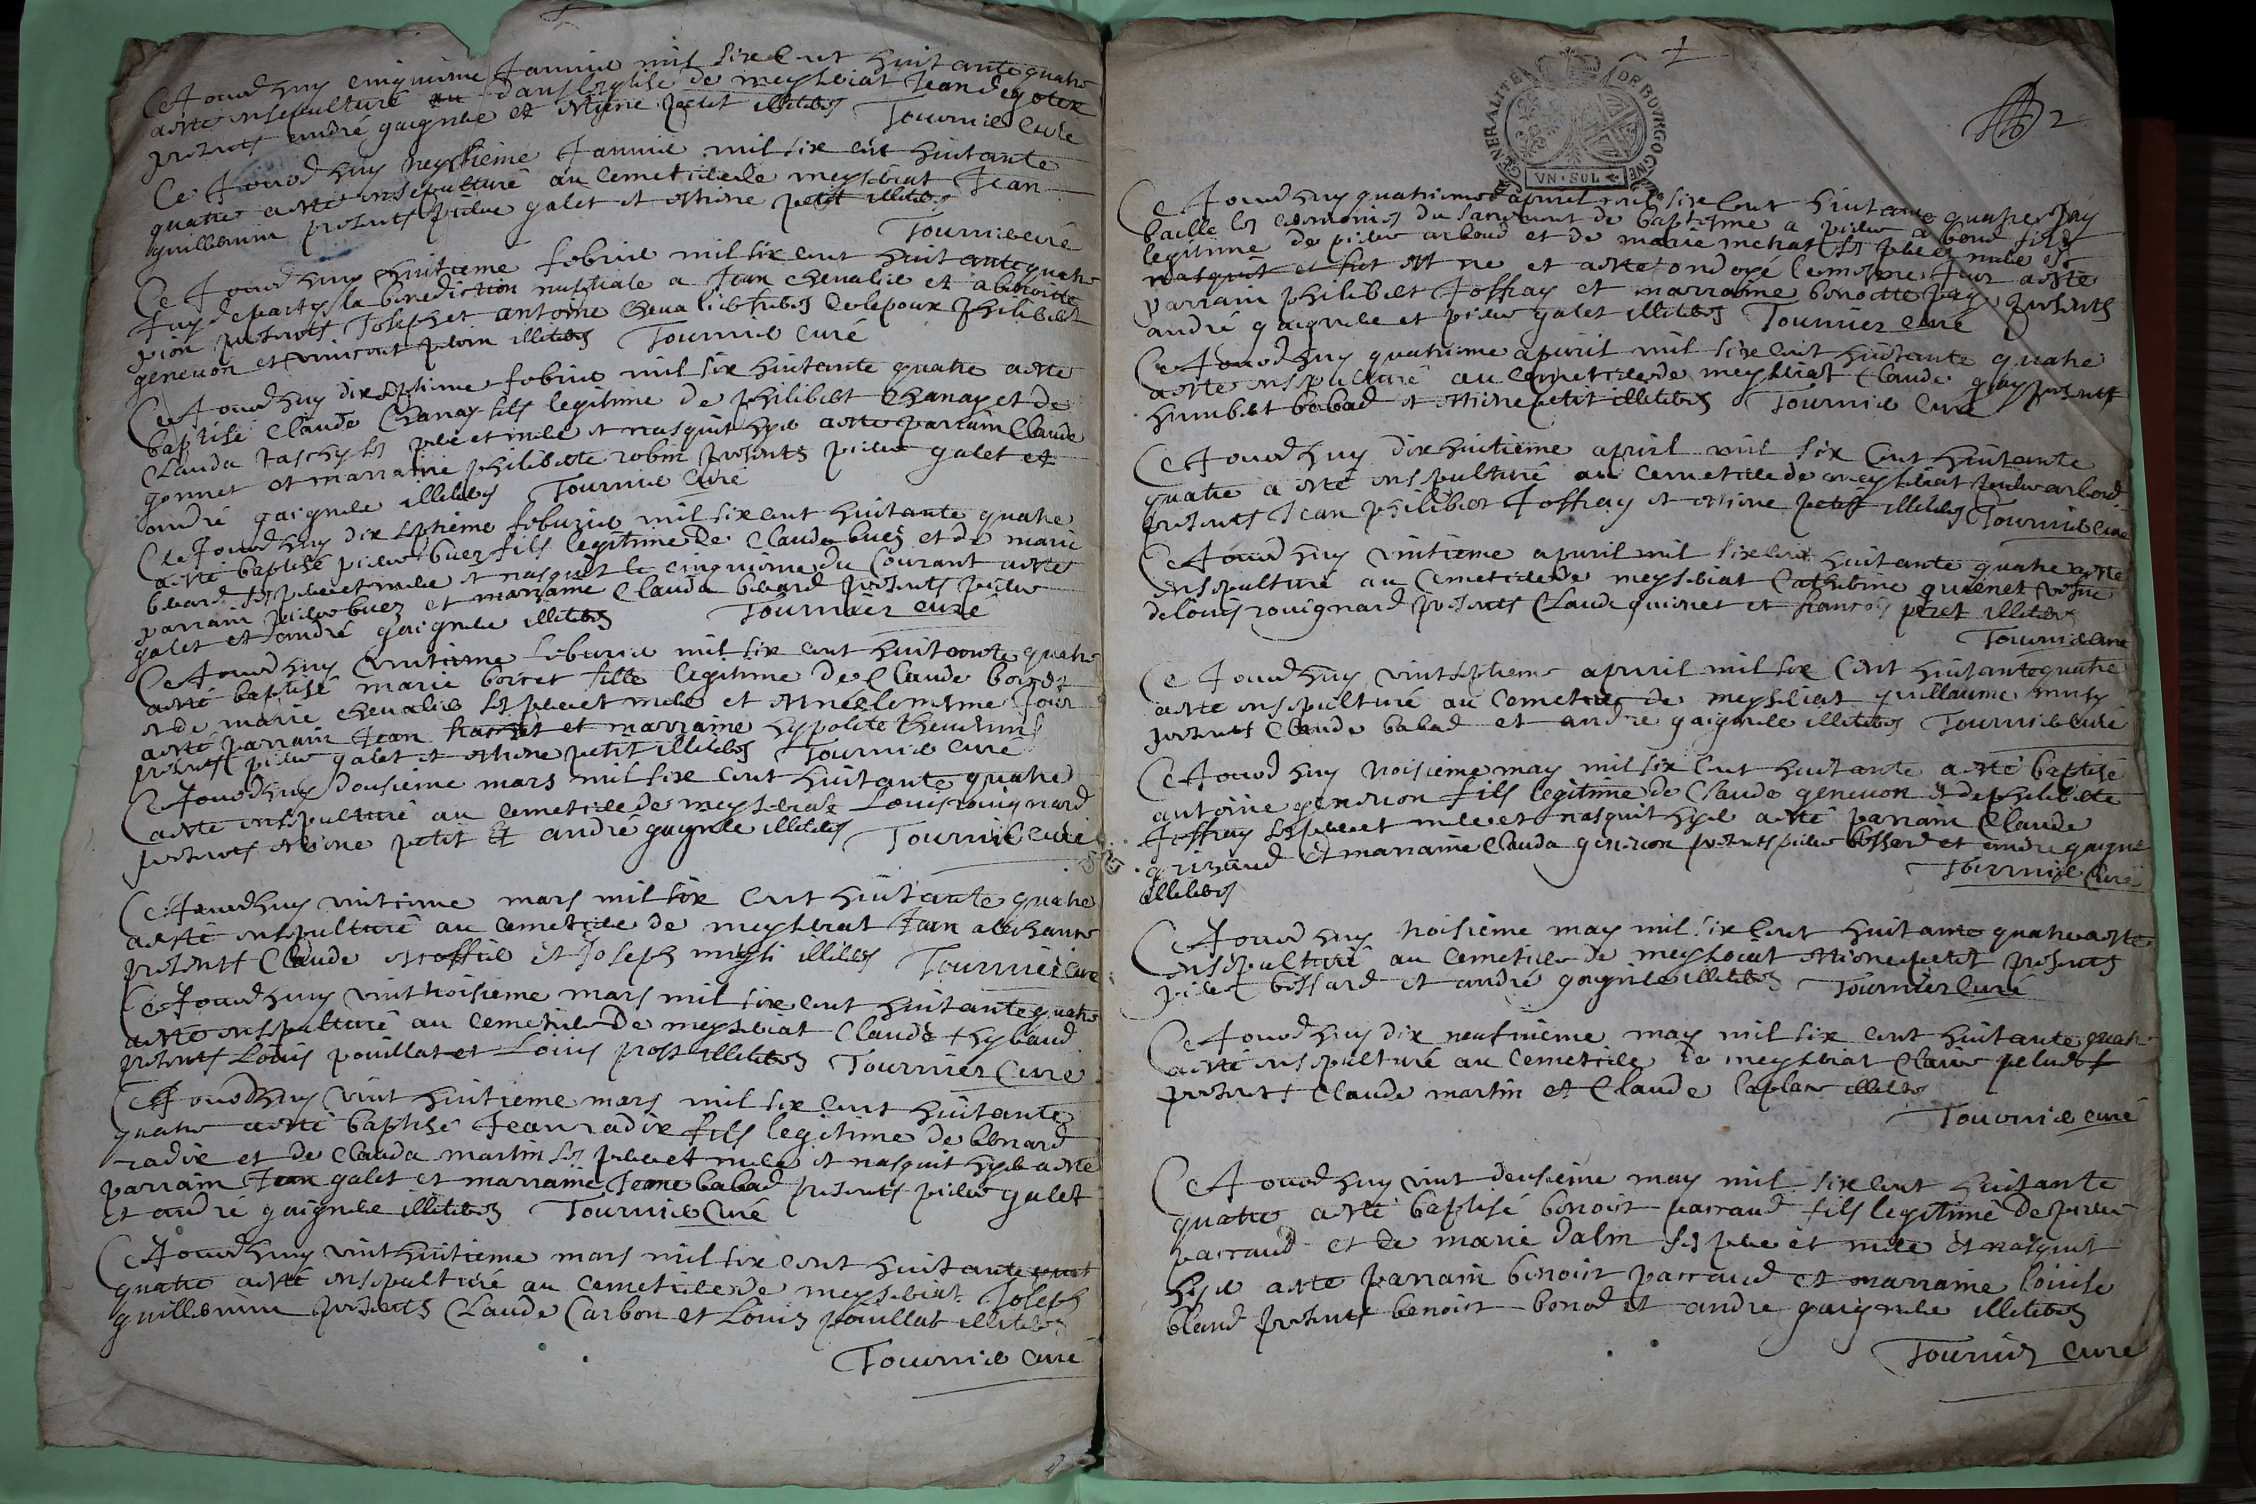 Ce Jourd huy cinquieme Janvie mil six cent huit ante quatre
a esté insepulturé dans leglise de meyseriat Jean degoter
presents andré gaignere et estiene petit illiteres Tournie Curé
Ce Jourd huy Januie mil six cent huitante
quatre a esté insepulturé au cemetiere de meyseriat Jean
guillermin presents pierre galet et estiene petit illiteres
Tournier curé
Ce Jourd huy huitieme febrie mil six cent huitante quatre
Jay departy la benediction nuptiale a Jean chevalie et a benoite
pion presents Joseph et antoine chevalie freres de lepoux philibert
genevon et vincent illiteres Tournie curé
Ce Jourd huy dix septieme febrie mil six huitante quatre a esté
baptisé Claude Chanay fils legitime de philibert Chanay et de
Clauda ses pere et mere et nasquit hyer a esté parrain Claude
gonnet et marraine philiberte robin presents pierre galet et
andré gaignere illiteres Tournie Curé
Ce Jourd huy dix septieme feburie mil six cent huitante quatre
a esté baptisé pierre buez fils legitime de Claude buez et de marie
berard ses pere et mere et nasquit le cinquieme du Courant a esté
parrain pierre buez et marraine Clauda berard presents pierre
galet et andré gaignere illiteres Tournier curé
Ce Jourd huy vintieme feburie mil six cent huitante quatre
a esté baptisé marie boiret fille legitime de Claude boiret
et de marie chevalie ses pere et mere et est née le mesme Jour
a esté parrain Jean et marraine hyppolite
presents pierre galet et estiene petit illiteres Tournie curé
Ce Jourd huy dousieme mars mil six cent huitante quatre
a esté insepulturé au cemetiere de meyseriat Louis rouignard
presents estiene petit et andré gaignere illiteres Tournie Curé
Ce Jourd huy vintieme mars mil six cent huitante quatre
a esté insepulturé au cemetiere de meyseriat Jean
presents Claude et Joseph illiteres Tournier Curé
Ce Jourd huy vint troisieme mars mil six cent huitante quatre
a esté insepulturé au cemetiere de meyseriat Claude thybaud
presents Louis pouillat et Louis prost illiteres Tournier Curé
Ce Jourd huy vint huitieme mars mil six cent huitante
quatre a esté baptisé Jean radix fils legitime de benard
radix et de Clauda martin ses pere et mere et nasquit hyer a esté
parrain Jean galet et marraine Jeane babad presents pierre galet
et andré gaignere illiteres Tournie Curé
Ce Jourd huy vint huitieme mars mil six cent huitante
quatre a esté insepulturé au cemetiere de meyseriat Joseph
guillermin presents Claude Carbon et Louis pouillat illiteres
Tournie Curé
GENERALITE DE BOVRGOGNE
VN·SOL
2
Ce Jourd huy quatrieme apvril mil six cent huitante quatre Jay
baille les ceremonies du sacrement de baptesme a pierre arboud fils
legitime de pierre arboud et de marie ses pere et mere et
nasquit et fut est ne et a esté ondoyé le mesme Jour a esté
parrain philibert Joffray et marraine benoitte presents
andré gaignere et pierre galet illiteres Tournier Curé
Ce Jourd huy quatrieme apvril mil six cent huitante quatre
a esté insepulturé au cemetiere de meyseriat Claude presents
humbert babad et estiene petit illiteres Tournie Curé
Ce Jourd huy dix huitieme apvril mil six cent huitante
quatre a esté insepulturé au cemetiere de meyseriat pierre arboud
presents Jean philibert Joffray et estiene petit illiteres Tournier Curé
Ce Jourd huy vintieme apvril mil six cent huitante quatre a esté
insepulturé au cemetiere de meyseriat Catherine guionet
de louis rouignard presents Claude guionet et francois illiteres
Tournie curé
Ce Jourd huy vint septieme apvril mil six cent huitante quatre
a esté insepulturé au cemetiere de meyseriat guillaume
presents Claude babad et andre gaignere illiteres Tournie Curé
Ce Jourd huy troisieme may mil six cent huitante a esté baptisé
antoine genevon fils legitime de Claude genevon et de philiberte
Joffray ses pere et mere et nasquit hyer a esté parrain Claude
et marraine Clauda genevon presents pierre bossard et andre gaignere
illiteres Tournie Curé
Ce Jourd huy troisieme may mil six cent huitante quatre a esté
insepulturé au cemetiere de meyseriat estiene petit presents
pierre bossard et andré gaignere illiteres Tournier Curé
Ce Jourd huy dix neufvieme may mil six cent huitante quatre
a esté insepulturé au cemetiere de meyseriat
presents Claude martin et Claude illiteres
Tournie curé
Ce Jourd huy vint deusieme may mil six cent huitante
quatre a esté baptisé benoist parraud fils legitime de pierre
parraud et de marie dalin ses pere et mere et nasquit
hyer a esté parrain benoist parraud et marraine louise
bland presents benoist bonod et andre gaignere illiteres
Tournier Curé